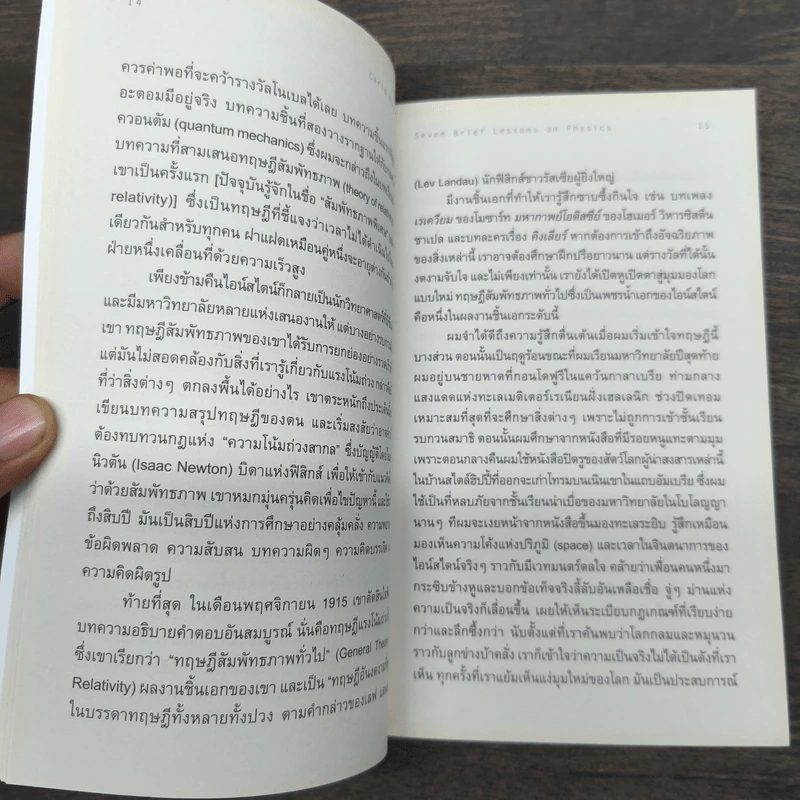 14
Carlo
ควรค่าพอที่จะคว้ารางวัลโนเบลได้เลย บทความชิ้นแรก
อะตอมมีอยู่จริง บทความชิ้นที่สองวางรากฐานให้กับ
ควอนตัม (quantum mechanics) ซึ่งผมจะกล่าวถึงในบท
บทความที่สามเสนอทฤษฎีสัมพัทธภาพ (theory of
เขาเป็นครั้งแรก [ปัจจุบันรู้จักในชื่อ “สัมพัทธภาพพิเศษ”
relativity)] ซึ่งเป็นทฤษฎีที่ชี้แจงว่าเวลาไม่ได้ดำเนินไป
เดียวกันสำหรับทุกคน ฝาแฝดเหมือนคู่หนึ่งจะอายุต่างกัน
ฝ่ายหนึ่งเคลื่อนที่ด้วยความเร็วสูง
เพียงข้ามคืนไอน์สไตน์ก็กลายเป็นนักวิทยาศาสตร์
และมีมหาวิทยาลัยหลายแห่งเสนองานให้ แต่บางอย่าง
เขา ทฤษฎีสัมพัทธภาพของเขาได้รับการยกย่องอย่าง
แต่มันไม่สอดคล้องกับสิ่งที่เรารู้เกี่ยวกับแรงโน้มถ่วง
ที่ว่าสิ่งต่างๆ ตกลงพื้นได้อย่างไร เขาตระหนักถึง
เขียนบทความสรุปทฤษฎีของตน และเริ่มสงสัยว่า
ต้องทบทวนกฎแห่ง “ความโน้มถ่วงสากล” ซึ่งบัญญัติ
นิวตัน (Isaac Newton) บิดาแห่งฟิสิกส์ เพื่อให้เข้ากับ
ว่าด้วยสัมพัทธภาพ เขาหมกมุ่นครุ่นคิดเพื่อไขปัญหานี้
ถึงสิบปี มันเป็นสิบปีแห่งการศึกษาอย่างคลุ้มคลั่ง
ข้อผิดพลาด ความสับสน บทความผิดๆ ความคิดบรรเจิด
ความคิดผิดรูป
ท้ายที่สุด ในเดือนพฤศจิกายน 1915 เขาตัดสินใจ
บทความอธิบายคำตอบอันสมบูรณ์ นั่นคือทฤษฎีแรงโน้มถ่วง
ซึ่งเขาเรียกว่า “ทฤษฎีสัมพัทธภาพทั่วไป” (General Theory
Relativity) ผลงานชิ้นเอกของเขา และเป็น “ทฤษฎีอันงดงาม
ในบรรดาทฤษฎีทั้งหลายทั้งปวง ตามคำกล่าวของเลฟ
Seven Brief Lessons on Physics 15
(Lev Landau) นักฟิสิกส์ชาวรัสเซียผู้ยิ่งใหญ่
มีงานชิ้นเอกที่ทำให้เรารู้สึกซาบซึ้งกินใจ เช่น บทเพลง
เรเควียม ของโมซาร์ท มหากาพย์โอดิสซีย์ ของโฮเมอร์ วิหารซิสตีน
ชาเปล และบทละครเรื่อง คิงเลียร์ หากต้องการเข้าถึงอัจฉริยภาพ
ของสิ่งเหล่านี้ เราอาจต้องศึกษาฝึกปรือยาวนาน แต่รางวัลที่ได้นั้น
งดงามจับใจ และไม่เพียงเท่านั้น เรายังได้เปิดหูเปิดตาสู่มุมมองโลก
แบบใหม่ ทฤษฎีสัมพัทธภาพทั่วไปซึ่งเป็นเพชรน้ำเอกของไอน์สไตน์
คือหนึ่งในผลงานชิ้นเอกระดับนี้
ผมจำได้ดีถึงความรู้สึกตื่นเต้นเมื่อผมเริ่มเข้าใจทฤษฎีนี้
บางส่วน ตอนนั้นเป็นฤดูร้อนขณะที่ผมเรียนมหาวิทยาลัยปีสุดท้าย
ผมอยู่บนชายหาดที่กอนโดฟูรีในแคว้นกาลาเบรีย ท่ามกลาง
แสงแดดแห่งทะเลเมดิเตอร์เรเนียนฝั่งเฮลเลนิก ช่วงปิดเทอม
เหมาะสมที่สุดที่จะศึกษาสิ่งต่างๆ เพราะไม่ถูกการเข้าชั้นเรียน
รบกวนสมาธิ ตอนนั้นผมศึกษาจากหนังสือที่มีรอยหนูแทะตามมุม
เพราะตอนกลางคืนผมใช้หนังสือปิดรูของสัตว์โลกผู้น่าสงสารเหล่านี้
ในบ้านสไตล์ฮิปปี้ที่ออกจะเก่าโทรมบนเนินเขาในแถบอัมเบรีย ซึ่งผม
ใช้เป็นที่หลบภัยจากชั้นเรียนน่าเบื่อของมหาวิทยาลัยในโบโลญญา
นานๆ ทีผมจะเงยหน้าจากหนังสือขึ้นมองทะเลระยิบ รู้สึกเหมือน
มองเห็นความโค้งแห่งปริภูมิ (space) และเวลาในจินตนาการของ
ไอน์สไตน์จริงๆ ราวกับมีเวทมนตร์ดลใจ คล้ายว่าเพื่อนคนหนึ่งมา
กระซิบข้างหูและบอกข้อเท็จจริงลี้ลับอันเหลือเชื่อ จู่ๆ ม่านแห่ง
ความเป็นจริงก็เลื่อนขึ้น เผยให้เห็นระเบียบกฎเกณฑ์ที่เรียบง่าย
กว่าและลึกซึ้งกว่า นับตั้งแต่ที่เราค้นพบว่าโลกกลมและหมุนวน
ราวกับลูกข่างบ้าคลั่ง เราก็เข้าใจว่าความเป็นจริงไม่ได้เป็นดังที่เรา
เห็น ทุกครั้งที่เราแย้มเห็นแง่มุมใหม่ของโลก มันเป็นประสบการณ์